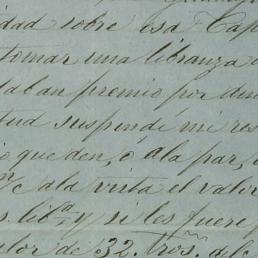 idad sobre esa Cap
tomar una libranza
daban premio por din
tud suspendé mi res
o que den, ó a la par,
a la vista el valor
s. lib.ᵃ y si les fuere
alor de 32. trōs. de